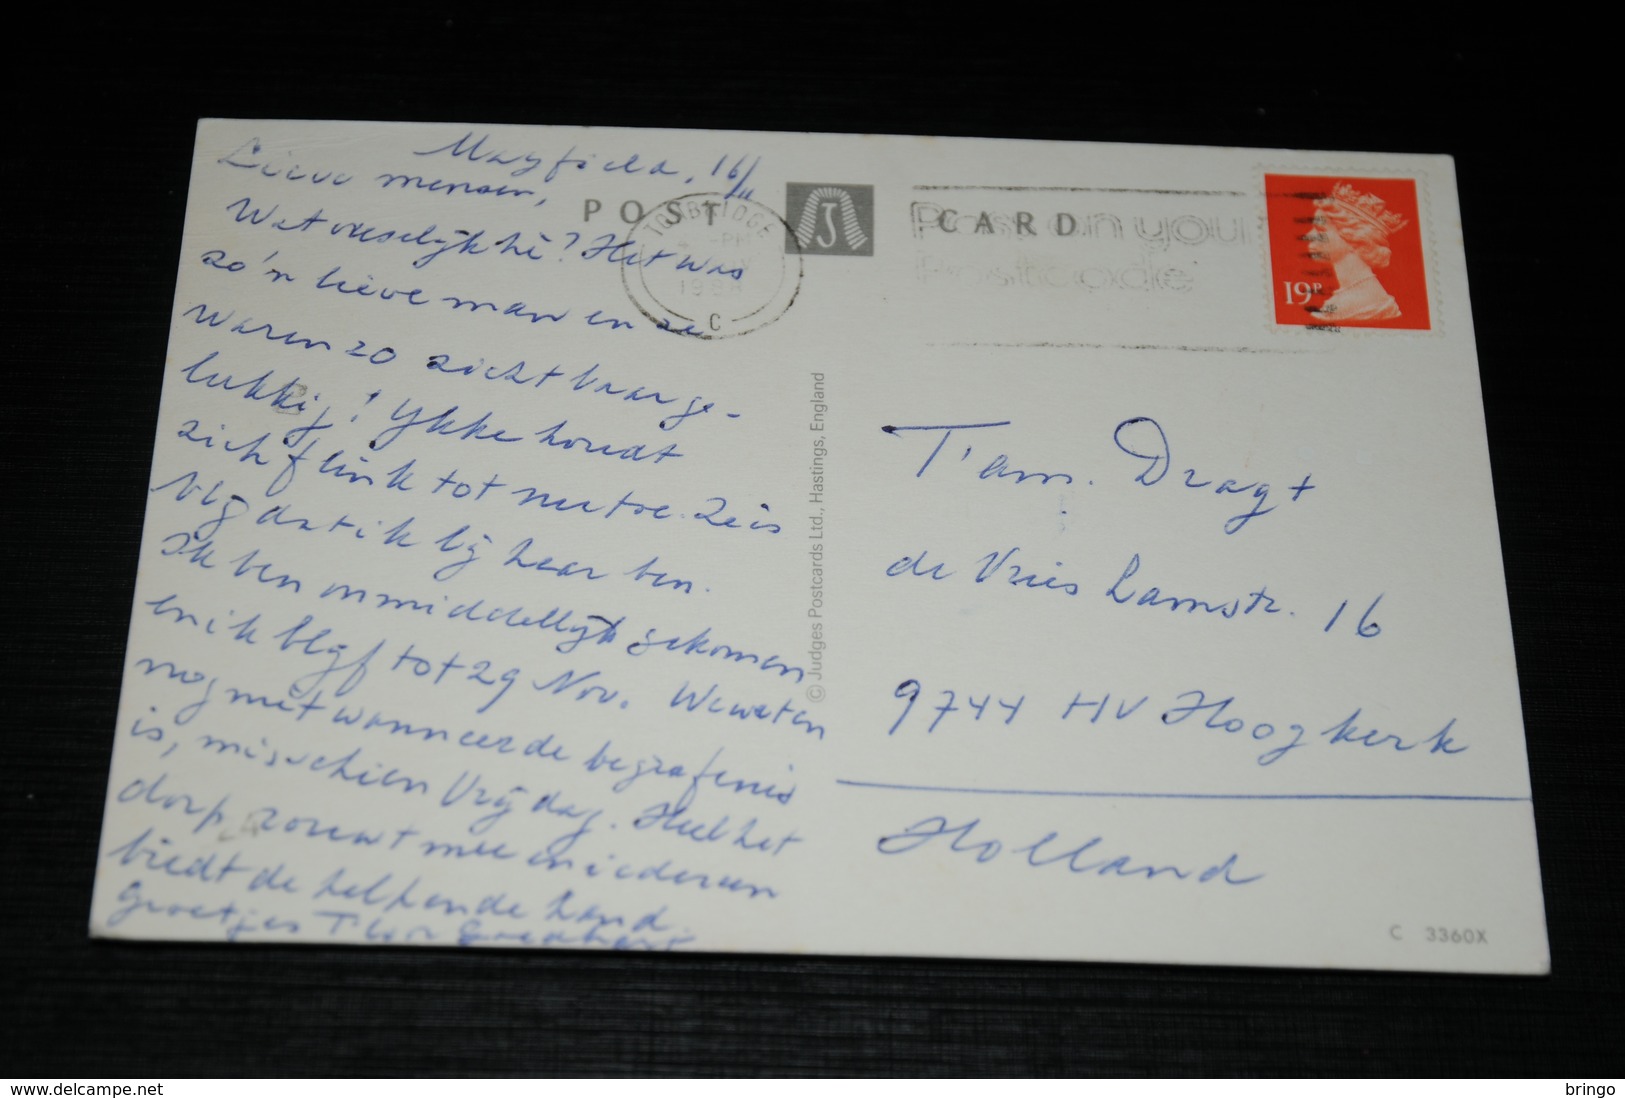 Mayfield, 16/11
Lieve mensen,
Wat vreselijk hè? Het was
zo'n lieve man en ze
waren zo zichtbaar ge-
lukkig! Ykke houdt
zich flink tot nu toe. Ze is
blij dat ik bij haar ben.
Ik ben onmiddellijk gekomen
en ik blijf tot 29 Nov. We weten
nog niet wanneer de begrafenis
is, misschien Vrijdag. Heel het
dorp rouwt mee en iedereen
biedt de helpende hand
Groetjes
POST CARD
TONBRIDGE
PM
1988
C
Post on you
Postcode
19P
© Judges Postcards Ltd., Hastings, England
Fam. Dragt
de Vries Lamstr. 16
9744 HV Hoogkerk
Holland
C 3360X
www.delcampe.net
bringo